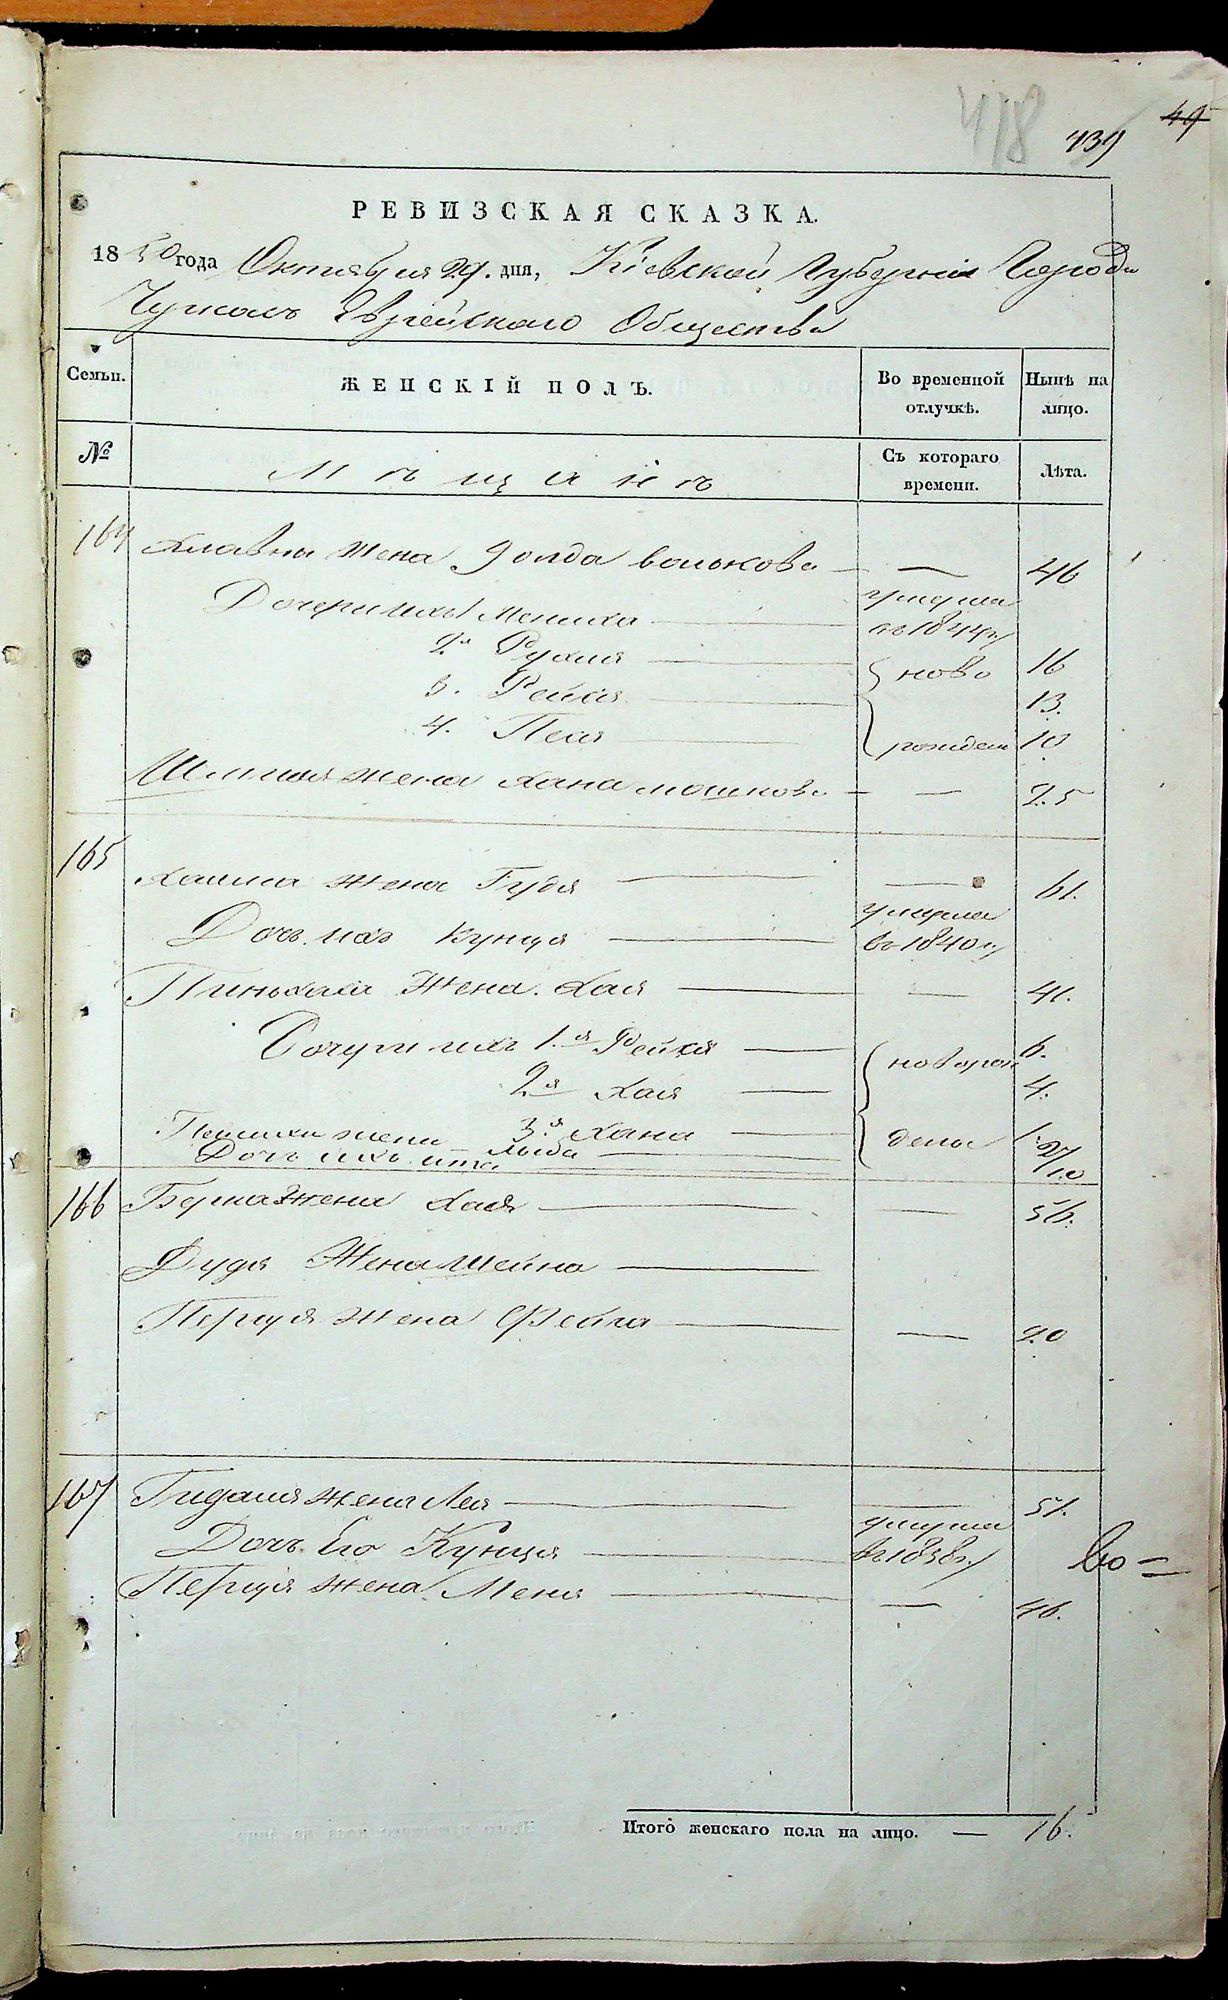 418 439 49
РЕВИЗСКАЯ СКАЗКА.
1850 года Октября 29. дня, Кіевской Губерніи Города
Еврейскаго Общества
Семьи.
ЖЕНСКІЙ ПОЛЪ.
Во временной отлучкѣ.
Нынѣ на лицо.
№
Мѣщанъ
Съ котораго времени.
Лѣта.
164 жена Голда Волькова — — 46
Дочери ихъ 1 Мениха — умерла въ 1844 г
2я Рухля — ново 16
3. Рейзя — 13.
4. Песя — рожден 10
Шмуля жена Хана Мошкова — — 25
165 Хаима жена Гудя — — 61.
Дочь ихъ Кунця — умерла въ 1840 г
Пинхаса жена Хая — — 41.
Дочери ихъ 1.я Рейзя — новорож 6.
2я Хая — 4.
3.я Хана — дены 1.
жена — 27
Дочь ихъ Ита — 1.0
166 Берка жена Хая — — 56.
Дудя жена Шейна —
Перця жена Фейга — — 20
167 Гидаля жена Лея — — 51.
Дочь Его Кунця — умерла
Перця жена Меня — — 46.
Итого женскаго пола на лицо. — 16.